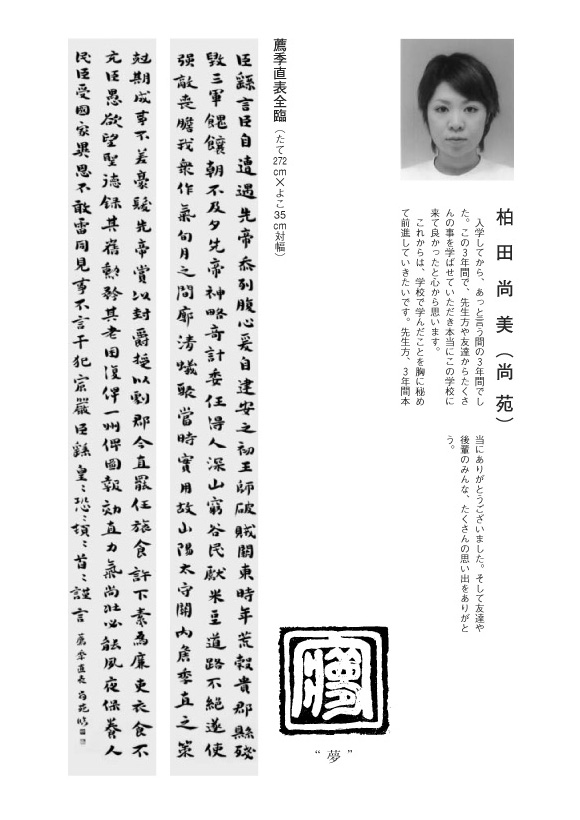 柏田尚美（尚苑）
　入学してから、あっと言う間の３年間でし
た。この３年間で、先生方や友達からたくさ
んの事を学ばせていただき本当にこの学校に
来て良かったと心から思います。
　これからは、学校で学んだことを胸に秘め
て前進していきたいです。先生方、３年間本
当にありがとうございました。そして友達や
後輩のみんな、たくさんの思い出をありがと
う。
“夢”
薦季直表全臨（たて272cm×よこ35cm対幅）
臣繇言臣自遭遇先帝忝列腹心爰自建安之初王師破賊關東時年荒穀貴郡縣殘
毀三軍餽饟朝不及夕先帝神略奇計委任得人深山窮谷民獻米豆道路不絶遂使
强敵喪膽我衆作氣旬月之間廓清蟻聚當時實用故山陽太守關内矦季直之策
尅期成事不差豪髮先帝賞以封爵授以劇郡今直罷任旅食許下素為廉吏衣食不
充臣愚欲望聖德録其舊勲矜其老困復俾一州俾圖報効直力氣尚壯必能夙夜保養人
民臣受國家異恩不敢雷同見事不言干犯宸嚴臣繇皇〻恐〻頓〻首〻謹言 薦季直表 尚苑臨